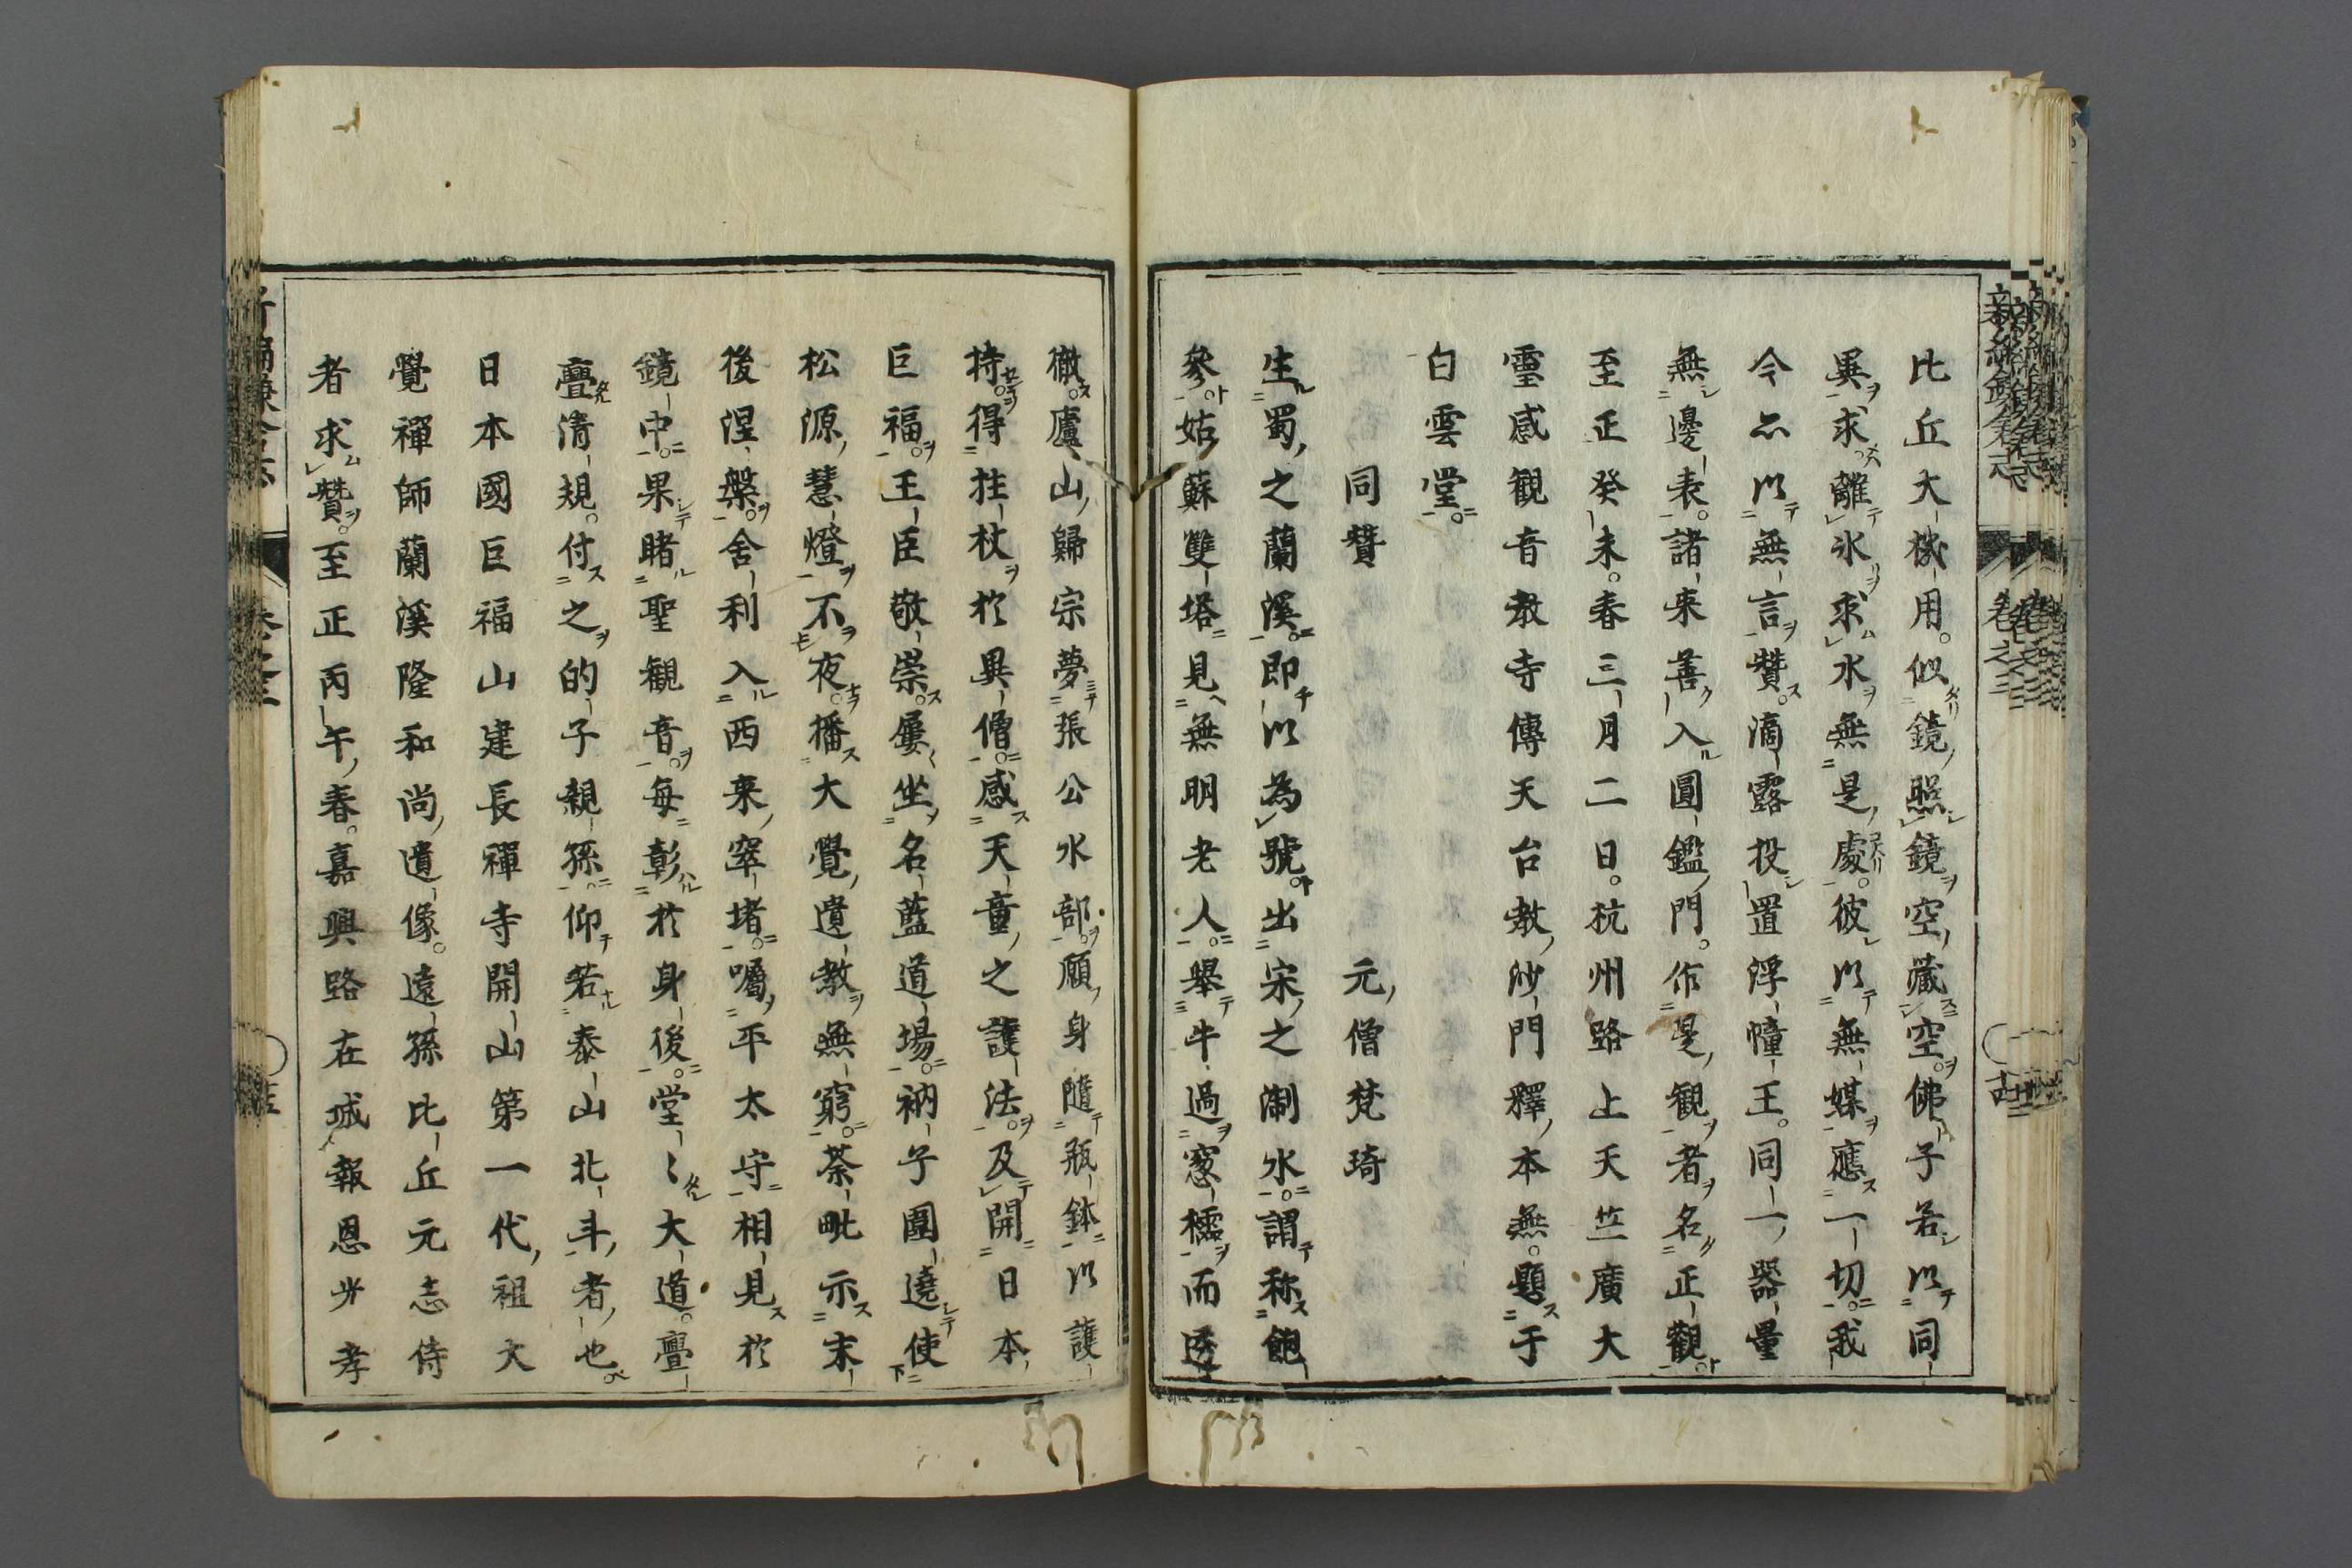 比丘大機用似鏡照鏡空藏空佛子若以同
異求離氷求水無是處彼以無媒應一切我
今亦以無言贊滴露投置浮幢王同一器量
無邊表諸来善入圓鑑門作是觀者名正觀
至正癸未春三月二日杭州路上天竺廣大
靈感観音教寺傳天台教沙門釋本無題于
白雲堂
同贊　元僧梵琦
生蜀之蘭溪即以為號出宋之淛水謂称飽
參姑蘇雙塔見無明老人舉牛過窓櫺而透
徹廬山歸宗夢張公水部願身隨瓶鉢以護
持得拄杖於異僧感天童之護法及開日本
巨福王臣敬崇屢坐名藍道場衲子圍遶使
松源慧燈不夜播大覺遺教無窮荼毗示末
後涅槃舍利入西来窣堵囑平太守相見於
鏡中果睹聖觀音每彰於身後堂〻大道亹
亹清規付之的子親孫仰若泰山北斗者也
日本國巨福山建長禪寺開山第一代祖大
覺禪師蘭溪隆和尚遺像遠孫比丘元志侍
者求贊至正丙午春嘉興路在城報恩光孝
卷之三